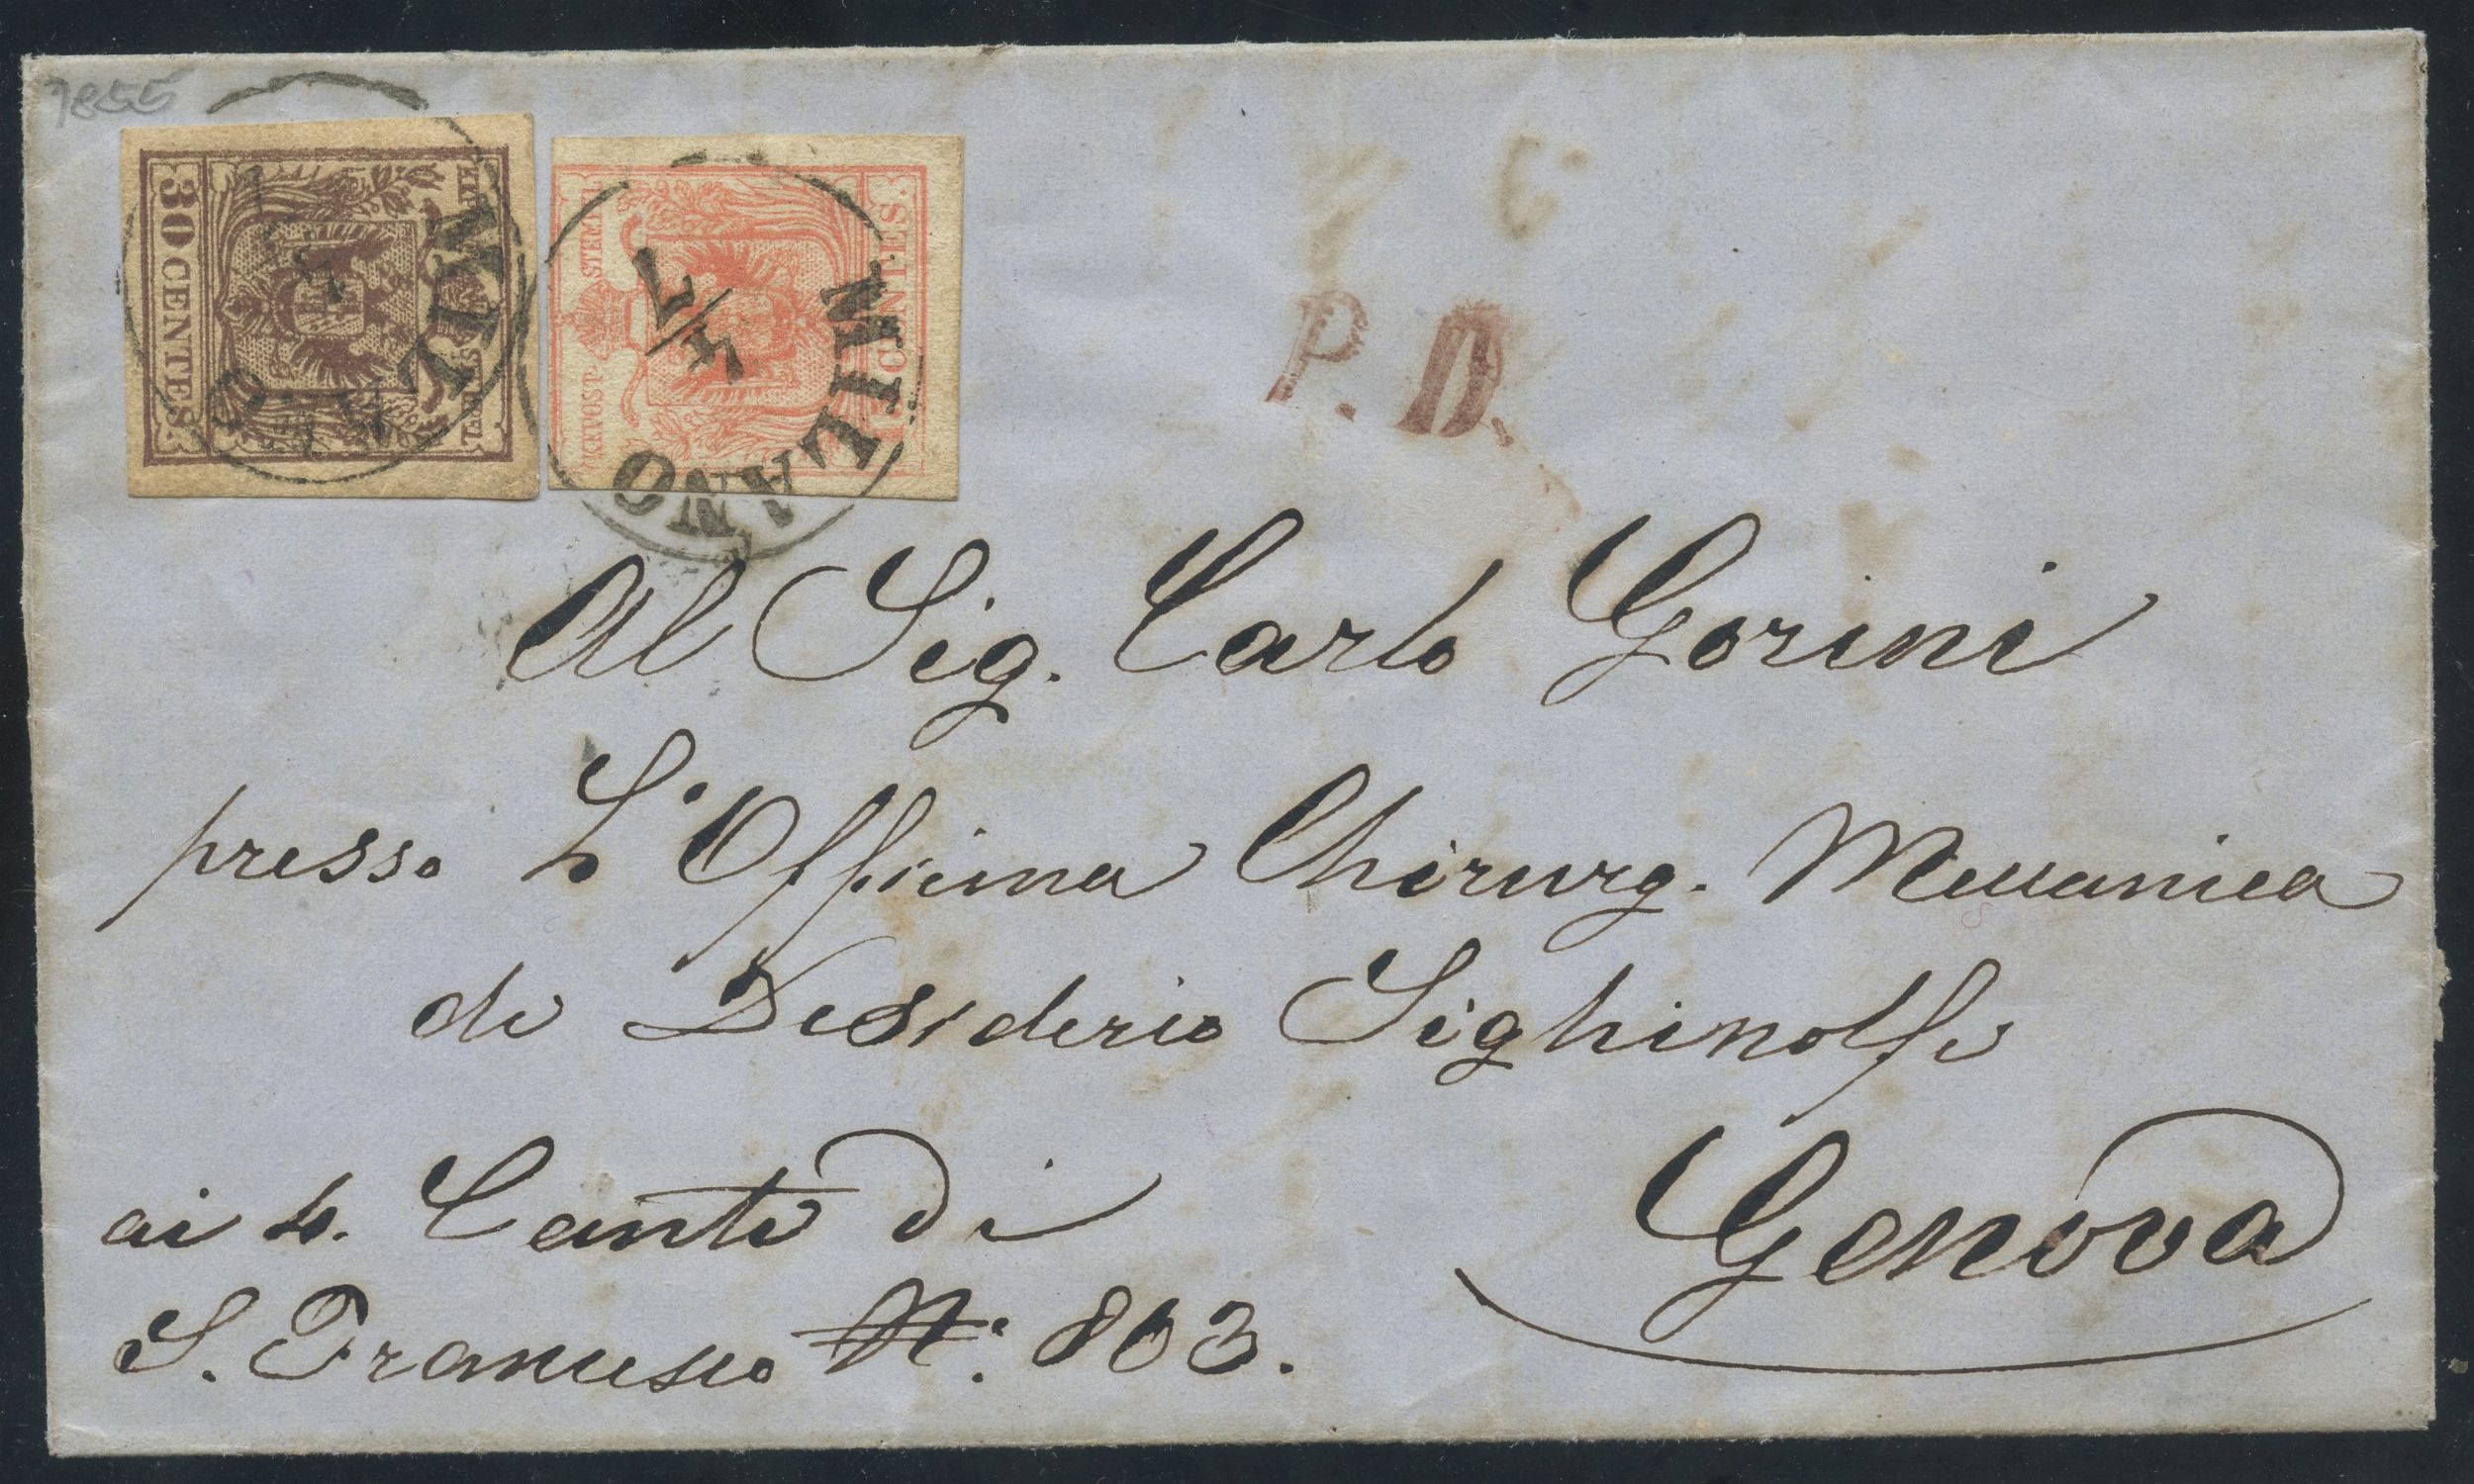 1855
30 CENTES.
MILANO
KKPOST-STEMPEL
CENTES.
MILANO
7/4
P. D.
Al Sig. Carlo Gorini
presso L'Officina Chirurg. Meccanica
di Desiderio Sighinolfi
ai 4. Canti di
S. Francesco N.° 863.
Genova